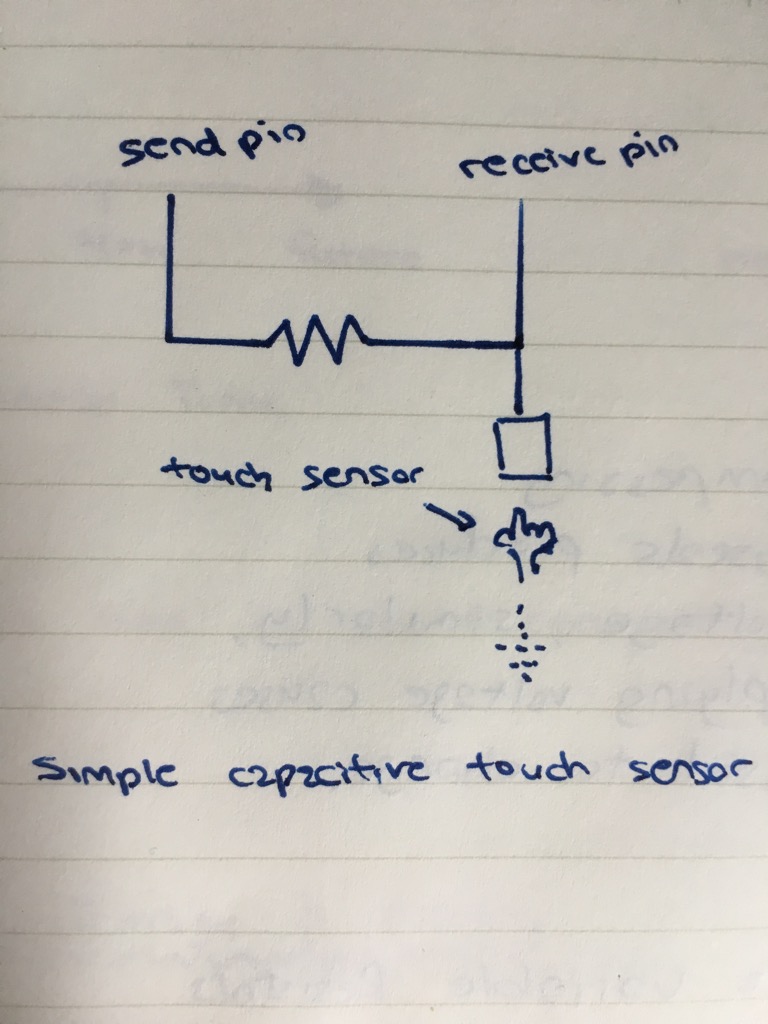 send pin
receive pin
touch sensor
Simple capacitive touch sensor